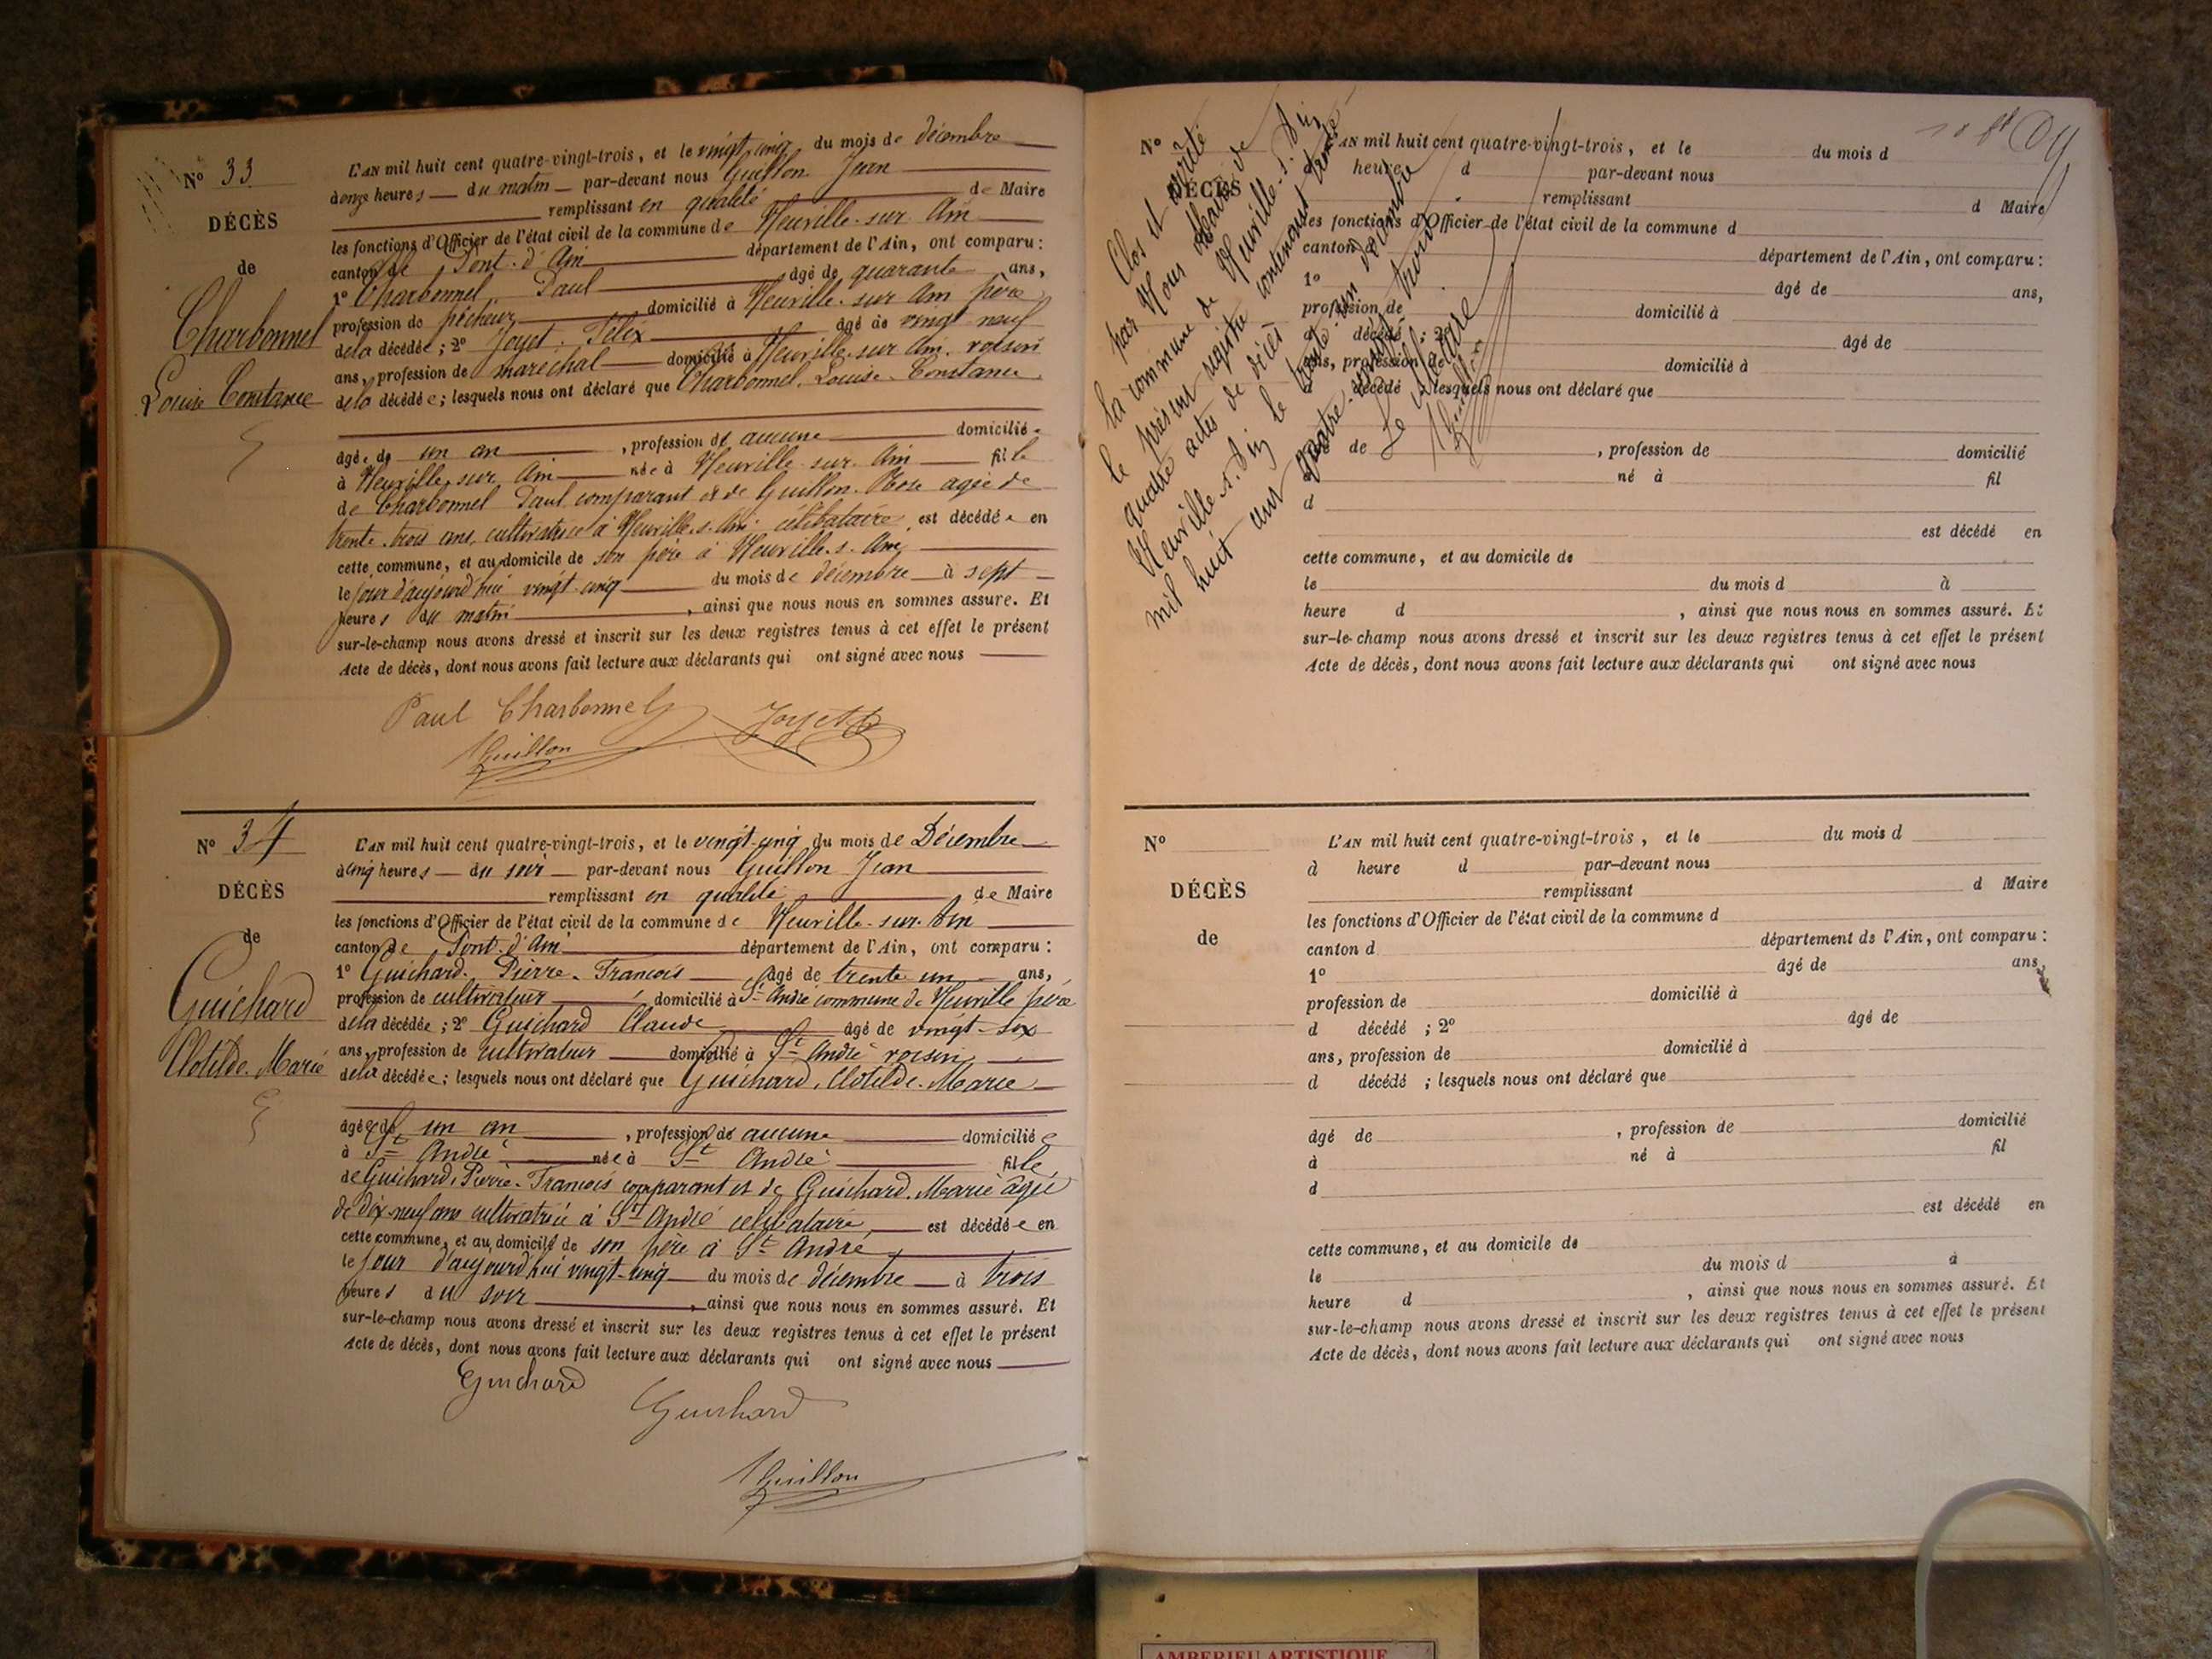 N° 33
DÉCÈS
de
Charbonnel
Louise Constance
L'AN mil huit cent quatre-vingt-trois, et le vingt cinq du mois de décembre
à onze heures du matin par-devant nous Guillon Jean
remplissant en qualité de Maire
les fonctions d'Officier de l'état civil de la commune de Neuville-sur-Ain
canton de Pont-d'Ain département de l'Ain, ont comparu :
1° Charbonnel, Paul âgé de quarante ans,
profession de pêcheur domicilié à Neuville-sur Ain père
de la décédée ; 2° Joyet Félix âgé de vingt neuf
ans, profession de maréchal domicilié à Neuville-sur Ain, voisin
de la décédée ; lesquels nous ont déclaré que Charbonnel, Louise-Constance
âgée de un an, profession de aucune domiciliée
à Neuville sur Ain née à Neuville sur Ain fille
de Charbonnel Paul comparant et de Guillon Rose agée de
trente-trois ans, cultivatrice à Neuville-s-Ain célibataire, est décédée en
cette commune, et au domicile de son père à Neuville-s-Ain,
le jour d'aujourd'hui vingt-cinq du mois de décembre à sept
heures du matin, ainsi que nous nous en sommes assuré. Et
sur-le-champ nous avons dressé et inscrit sur les deux registres tenus à cet effet le présent
Acte de décès, dont nous avons fait lecture aux déclarants qui ont signé avec nous
Paul Charbonnel Joyet
Guillon
N° 34
DÉCÈS
de
Guichard
Clotilde-Marie
L'AN mil huit cent quatre-vingt-trois, et le vingt-cinq du mois de Décembre
à cinq heures du soir par-devant nous Guillon Jean
remplissant en qualité de Maire
les fonctions d'Officier de l'état civil de la commune de Neuville-sur-Ain
canton de Pont-d'Ain département de l'Ain, ont comparu :
1° Guichard, Pierre-François âgé de trente un ans,
profession de cultivateur domicilié à St André commune de Neuville père
de la décédée ; 2° Guichard Claude âgé de vingt-six
ans, profession de cultivateur domicilié à St André voisin
de la décédée ; lesquels nous ont déclaré que Guichard, Clotilde-Marie
âgée de un an, profession de aucune domiciliée
à St André née à St André fille
de Guichard, Pierre-François comparant et de Guichard, Marie âgée
de dix-neuf ans cultivatrice à St André célibataire est décédée en
cette commune, et au domicile de son père à St André,
le jour d'aujourd'hui vingt-cinq du mois de décembre à trois
heures du soir, ainsi que nous nous en sommes assuré. Et
sur-le-champ nous avons dressé et inscrit sur les deux registres tenus à cet effet le présent
Acte de décès, dont nous avons fait lecture aux déclarants qui ont signé avec nous
Guichard
Guichard
Guillon
Clos et arrêté
par Nous Maire de
la commune de Neuville-s-Ain
le présent registre contenant trente
quatre actes de décès
Neuville s. Ain le trente-un décembre
mil huit cent quatre-vingt trois
Le Maire
Guillon
N°
DÉCÈS
L'AN mil huit cent quatre-vingt-trois, et le du mois d
heure d par-devant nous
remplissant d Maire
les fonctions d'Officier de l'état civil de la commune d
canton d département de l'Ain, ont comparu :
1° âgé de ans,
profession de domicilié à
d décédé ; 2° âgé de
ans, profession de domicilié à
d décédé ; lesquels nous ont déclaré que
de , profession de domicilié
né à fil
d
est décédé en
cette commune, et au domicile de
le du mois d à
heure d , ainsi que nous nous en sommes assuré. Et
sur-le-champ nous avons dressé et inscrit sur les deux registres tenus à cet effet le présent
Acte de décès, dont nous avons fait lecture aux déclarants qui ont signé avec nous
N°
DÉCÈS
de
L'AN mil huit cent quatre-vingt-trois, et le du mois d
à heure d par-devant nous
remplissant d Maire
les fonctions d'Officier de l'état civil de la commune d
canton d département de l'Ain, ont comparu :
1° âgé de ans,
profession de domicilié à
d décédé ; 2° âgé de
ans, profession de domicilié à
d décédé ; lesquels nous ont déclaré que
âgé de , profession de domicilié
à né à fil
d
est décédé en
cette commune, et au domicile de
le du mois d à
heure d , ainsi que nous nous en sommes assuré. Et
sur-le-champ nous avons dressé et inscrit sur les deux registres tenus à cet effet le présent
Acte de décès, dont nous avons fait lecture aux déclarants qui ont signé avec nous
AMBERIEU ARTISTIQUE